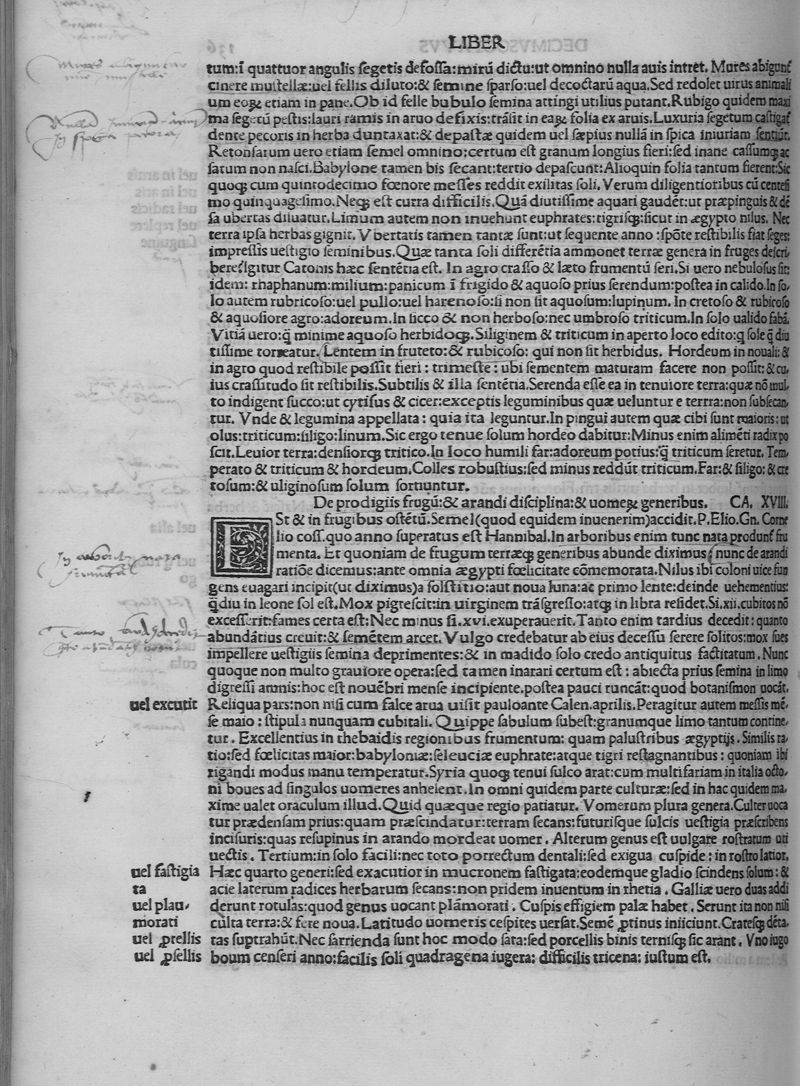 LIBER
tum:ī quattuor angulis ſegetis defoſſa:mirū dictu:ut omnino nulla auis intret. Mures abigunť
cinere muſtellæ:uel fellis diluto:& ſemine ſparſo:uel decoctarū aqua. Sed redolet uirus animali
um eoꝝ etiam in pane. Ob id felle bubulo ſemina attingi utilius putant. Rubigo quidem maxi
ma ſegetū peſtis:lauri ramis in aruo defixis:trāſit in eaꝝ folia ex aruis. Luxuria ſegetum caſtigať
dente pecoris in herba duntaxat:& depaſtæ quidem uel ſæpius nullā in ſpica iniuriam ſentiūt.
Retonſarum uero etiam ſemel omnino:certum eſt granum longius fieri:ſed inane caſſumꝙ ac
ſatum non naſci. Babylone tamen bis ſecant:tertio depaſcunt: Alioquin folia tantum fierent:Sic
quoꝙ cum quintodecimo fœnore meſſes reddit exilitas ſoli. Verum diligentioribus cū centeſi
mo quinquageſimo. Neꝙ eſt cura difficilis. Quā diutiſſime aquari gaudēt:ut præpinguis & dē
ſa ubertas diluatur. Limum autem non inuehunt euphrates:tigriſꝙ:ſicut in ægypto nilus. Nec
terra ipſa herbas gignit. Vbertatis tamen tantæ ſunt:ut ſequente anno :ſpōte reſtibilis fiat ſeges:
impreſſis ueſtigio ſeminibus. Quæ tanta ſoli differētia ammonet terræ genera in fruges deſcri
bere. Igitur Catonis hæc ſentētia eſt. In agro craſſo & læto frumentū ſeri. Si uero nebuloſus ſit:
idem: rhaphanum:milium:panicum ī frigido & aquoſo prius ſerendum:poſtea in calido. In ſo
lo autem rubricoſo:uel pullo:uel harenoſo:ſi non ſit aquoſum:lupinum. In cretoſo & rubicoſo
& aquoſiore agro:adoreum. In ſicco & non herboſo:nec umbroſo triticum. In ſolo ualido fabā.
Vitiā uero:q̄ minime aquoſo herbidoꝙ. Siliginem & triticum in aperto loco edito:q̄ ſole q̄ diu
tiſſime torreatur. Lentem in fruteto:& rubicoſo: qui non ſit herbidus. Hordeum in nouali:&
in agro quod reſtibile poſſit fieri : trimeſtre : ubi ſementem maturam facere non poſſit:& cu,
ius craſſitudo ſit reſtibilis. Subtilis & illa ſentētia. Serenda eſſe ea in tenuiore terra:quæ nō mul,
to indigent ſucco:ut cytiſus & cicer:exceptis leguminibus quæ ueluntur e terrra:non ſubſecan,
tur. Vnde & legumina appellata : quia ita leguntur. In pingui autem quæ cibi ſunt maioris: ut
olus:triticum:ſiligo:linum. Sic ergo tenue ſolum hordeo dabitur: Minus enim alimēti radix po
ſcit. Leuior terra:denſiorꝙ tritico. In loco humili far:adoreum potius:q̄ triticum ſeretur. Tem,
perato & triticum & hordeum. Colles robuſtius:ſed minus reddūt triticum. Far:& ſiligo: & cre
toſum:& uliginoſum ſolum ſortiuntur.
De prodigiis frugū:& arandi diſciplina:& uomeꝝ generibus. CA. XVIII.
ESt & in frugibus oſtētū. Semel(quod equidem inuenerim)accidit. P. Elio. Gn. Corne
lio coſſ. quo anno ſuperatus eſt Hannibal. In arboribus enim tunc nata produnt fru
menta. Et quoniam de frugum terræꝙ generibus abunde diximus: nunc de arandi
ratiōe dicemus:ante omnia ægypti fœlicitate cōmemorata. Nilus ibi coloni uice fun
gens euagari incipit(ut diximus)a ſolſtitio:aut noua luna:ac primo lente:deinde uehementius:
q̄diu in leone ſol eſt. Mox pigreſcit:in uirginem trāſgreſſo:atꝙ in libra reſidet. Si.xii. cubitos nō
exceſſerit:fames certa eſt: Nec minus ſi .xvi. exuperauerit. Tanto enim tardius decedit: quanto
abundātius creuit:& ſemētem arcet. Vulgo credebatur ab eius deceſſu ſerere ſolitos:mox ſues
impellere ueſtigiis ſemina deprimentes:& in madido ſolo credo antiquitus factitatum. Nunc
quoque non multo grauiore opera:ſed tamen inarari certum eſt : abiecta prius ſemina in limo
digreſſi amnis:hoc eſt nouēbri menſe incipiente. poſtea pauci runcāt:quod botaniſmon uocāt.
uel excutit
Reliqua pars:non niſi cum falce arua uiſit pauloante Calen. aprilis. Peragitur autem meſſis mē,
ſe maio : ſtipula nunquam cubitali. Quippe ſabulum ſubeſt:granumque limo tantum contine,
tur. Excellentius in thebaidis regionibus frumentum: quam paluſtribus ægyptijs. Similis ra,
tio:ſed fœlicitas maior:babyloniæ:ſeleuciæ euphrate:atque tigri reſtagnantibus : quoniam ibi
rigandi modus manu temperatur. Syria quoꝙ tenui ſulco arat:cum multifariam in italia octo,
ni boues ad ſingulos uomeres anhelent. In omni quidem parte culturæ:ſed in hac quidem ma,
xime ualet oraculum illud. Quid quæque regio patiatur. Vomerum plura genera. Culter uoca
tur prædenſam prius:quam præſcindatur:terram ſecans:futuriſque ſulcis ueſtigia præſcribens
inciſuris:quas reſupinus in arando mordeat uomer. Alterum genus eſt uulgare roſtratum uti
uectis. Tertium:in ſolo facili:nec toto porrectum dentali:ſed exigua cuſpide : in roſtro latior.
uel faſtigia
ta
Hæc quarto generi:ſed exacutior in mucronem faſtigata:eodemque gladio ſcindens ſolum: &
acie laterum radices herbarum ſecans:non pridem inuentum in rhetia. Galliæ uero duas addi
uel plau,
morati
derunt rotulas:quod genus uocant plāmorati. Cuſpis effigiem palæ habet. Serunt ita non niſi
culta terra:& fere noua. Latitudo uomeris ceſpites uerſat. Semē ꝓtinus iniiciunt. Crateſꝙ dēta,
uel ꝓtellis
uel ꝓſellis
tas ſuptrahūt. Nec ſarrienda ſunt hoc modo ſata:ſed porcellis binis terniſꝙ ſic arant. Vno iugo
boum cenſeri anno:facilis ſoli quadragena iugera: difficilis tricena: iuſtum eſt.